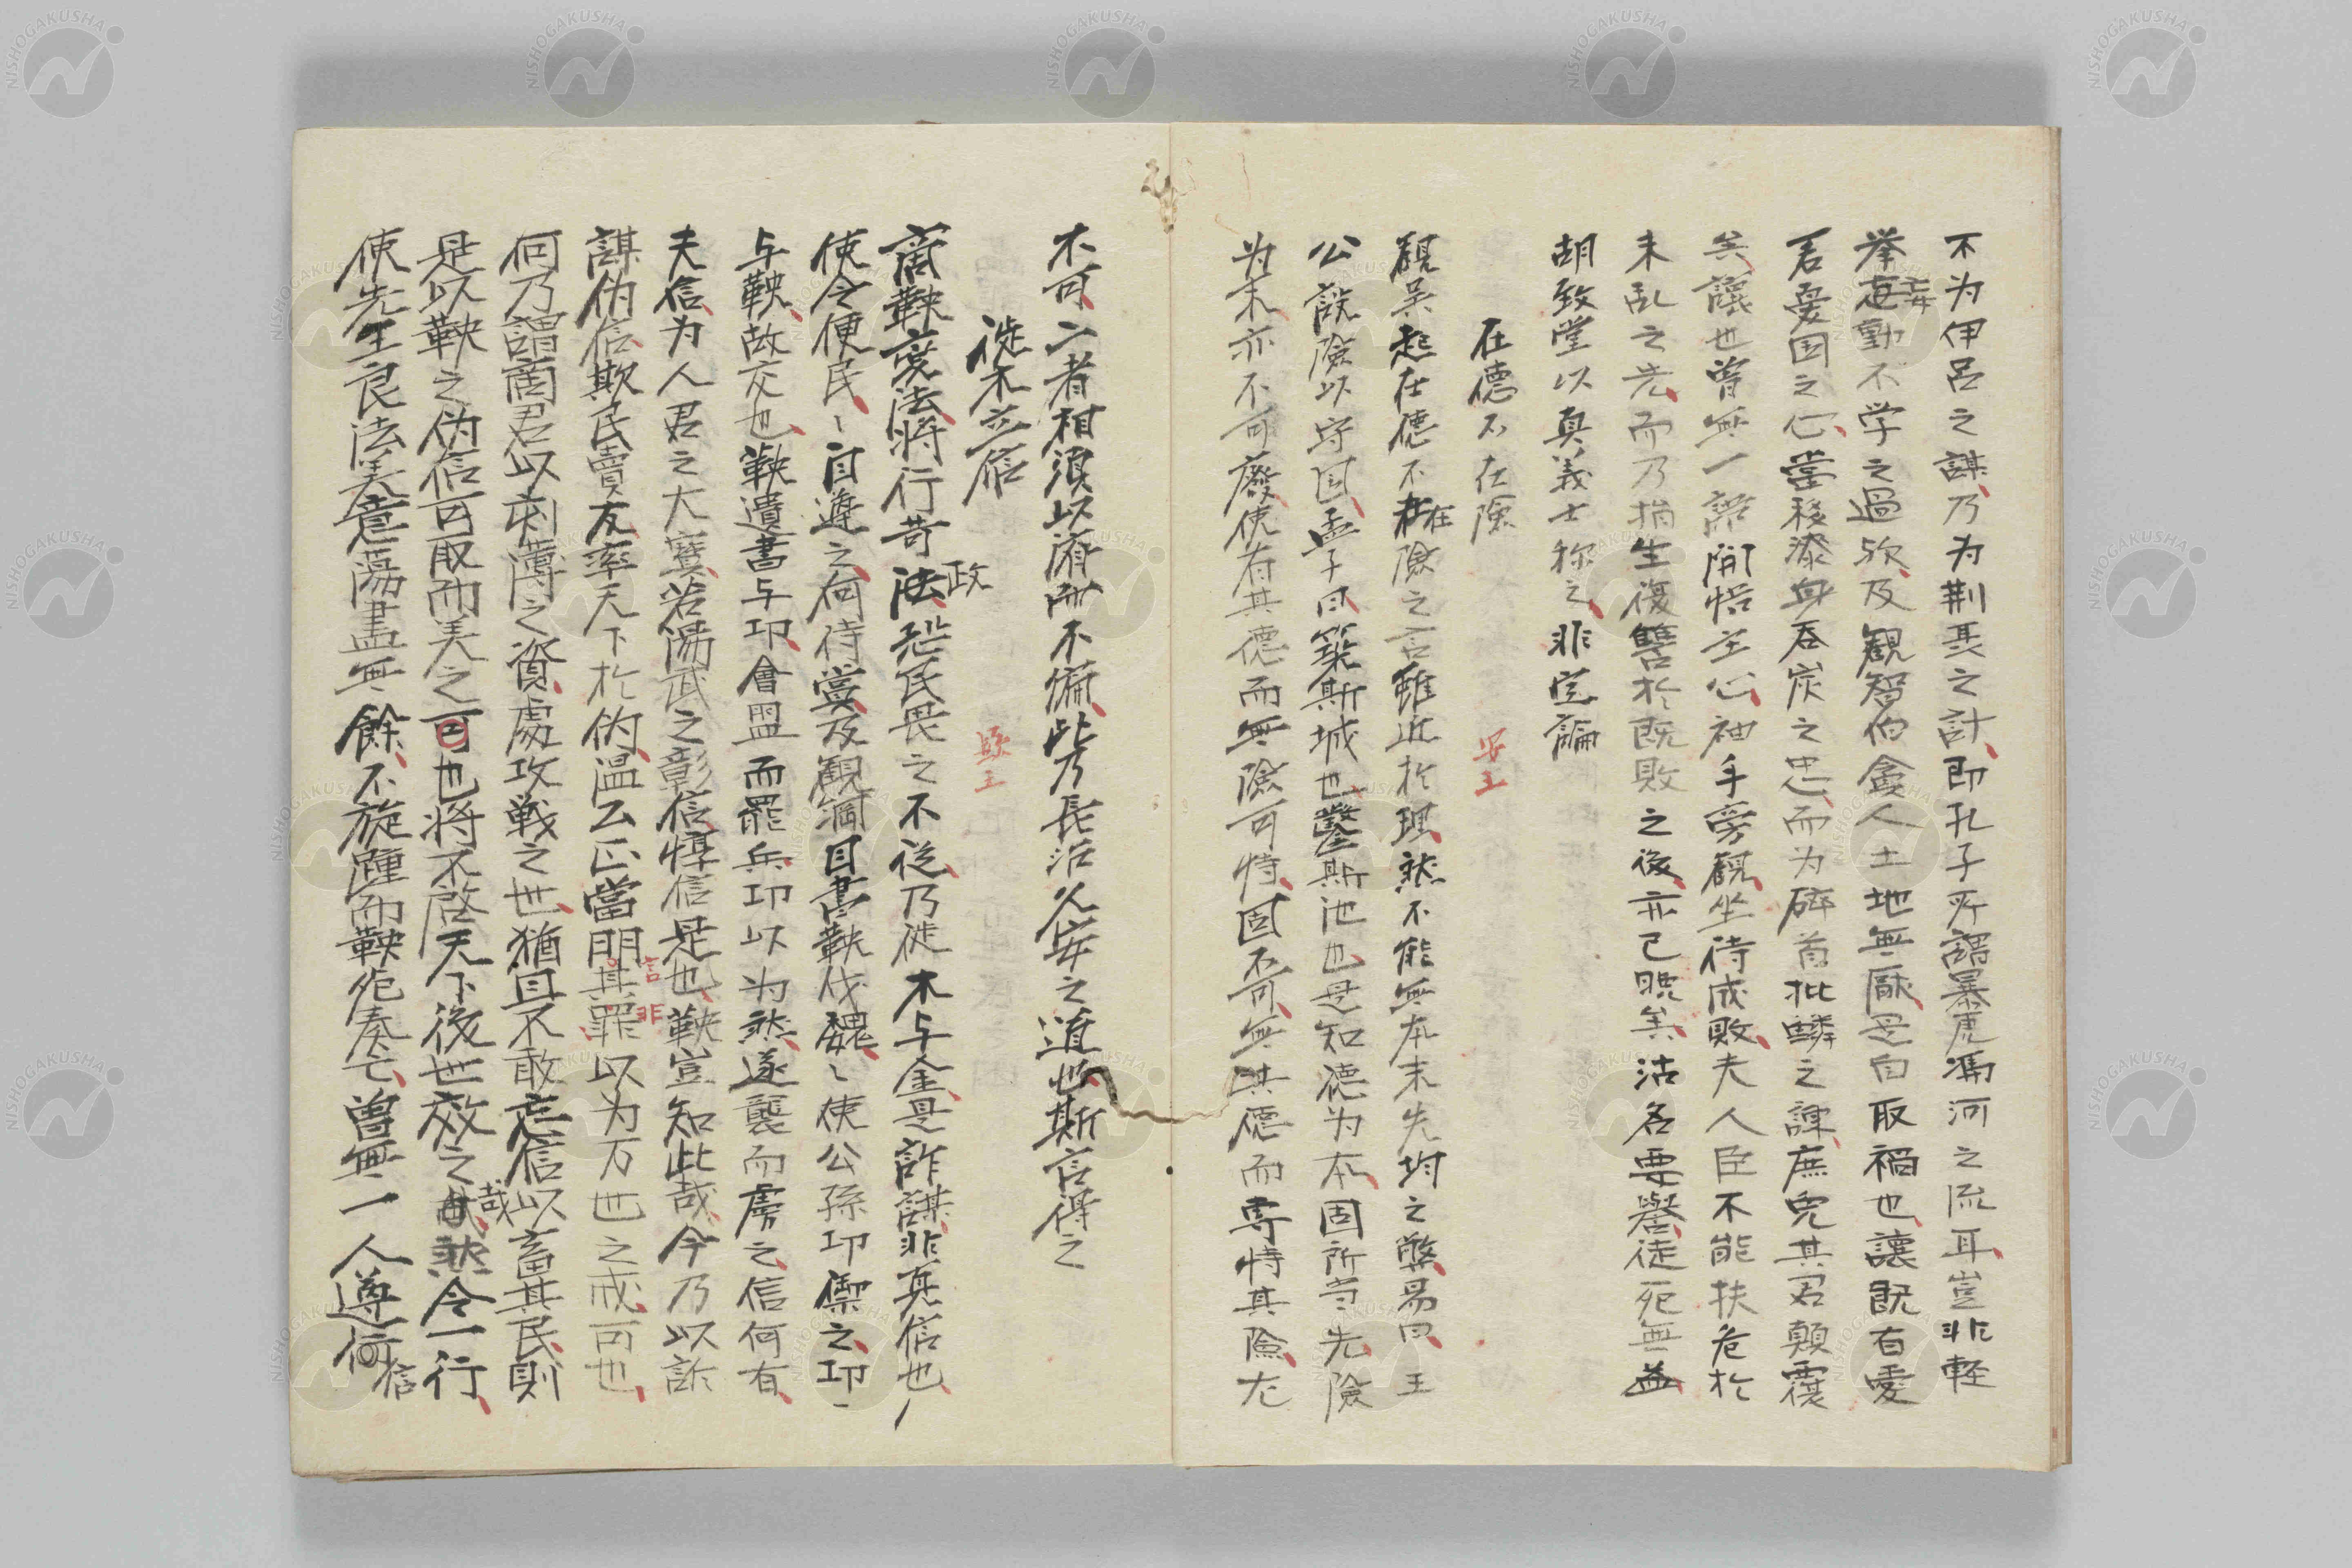 不为伊呂之謀、乃为荆聂之計、即孔子所謂暴虎馮河之流耳、豈非軽
挙妄動不学之過歟、及観智伯貪人土地無厭、是自取禍也、讓既有愛
君憂国之心、當移漆身吞炭之忠、而为碎首批鱗之諫、庶免其君顛覆
矣、議也曽無一語開悟主心、袖手旁観坐待成敗、夫人臣不能扶危於
未乱之先、而乃捐生復讐於既敗之後、亦已晩矣、沽名要譽徒死無益、
胡致堂以真義士称之、非定論
在德不在險 安王
観吴起在德不在險之言雖近於理、然不能無本末先後之弊、易曰、王
公設險以守国、孟子曰、築斯城也、鑿斯池也、是知德为本、固所当先險
为末亦不可廢、使有其德而無險可恃、固不可、無其德而専恃其險、尤
不可、二者相須以済而不偏、此乃長治久安之道也、斯言得之
徙木立信 顯王
商鞅变法、将行苛政、恐民畏之不从、乃徙木与金、是詐謀非真信也、
使令便民、ヽ自遵之、何待賞、及観綱目書鞅伐魏、ヽ使公孫卬禦之、卬
与鞅、故交也、鞅遺書与卬、會盟而罷兵、卬以为然、遂襲而虜之、信何有、
夫信、为人君之大寶、若湯武之彰信、惇信是也、鞅豈知此哉、今乃以詐
謀伪信欺民賣友、率天下於伪、温公正當明其非信罪以为万世之戒、可也、
何乃謂商君以刻薄之資、處攻戦之世、猶且不敢忘信以畜其民、則
是以鞅之伪信可取而美之可也将不啓天下後世效之哉、然令一行、
使先王良法美意蕩盡無餘、不旋踵而鞅死秦亡、曽無一人遵信